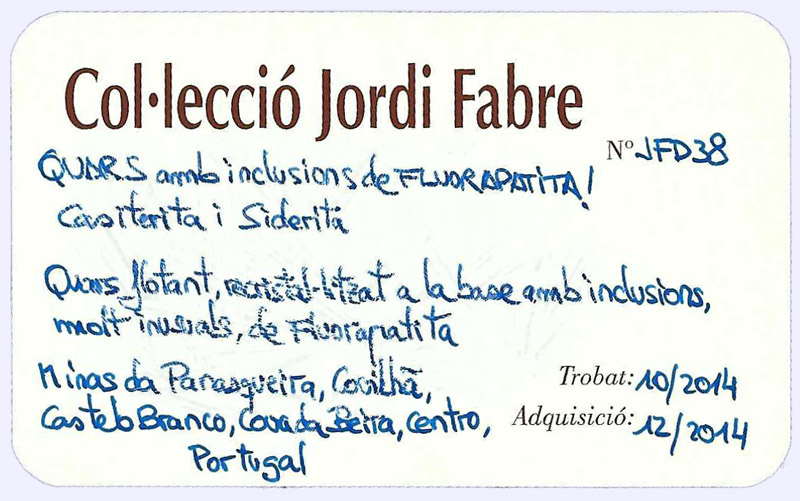 Col·lecció Jordi Fabre
Nº JFD38
QUARS amb inclusions de FLUORAPATITA!
Casiterita i Siderita
Quars flotant, recristal·litzat a la base amb inclusions,
molt inusuals, de Fluorapatita
Minas da Panasqueira, Covilhã,
Trobat: 10/2014
Castelo Branco, Cova da Beira, Centro,
Adquisició: 12/2014
Portugal